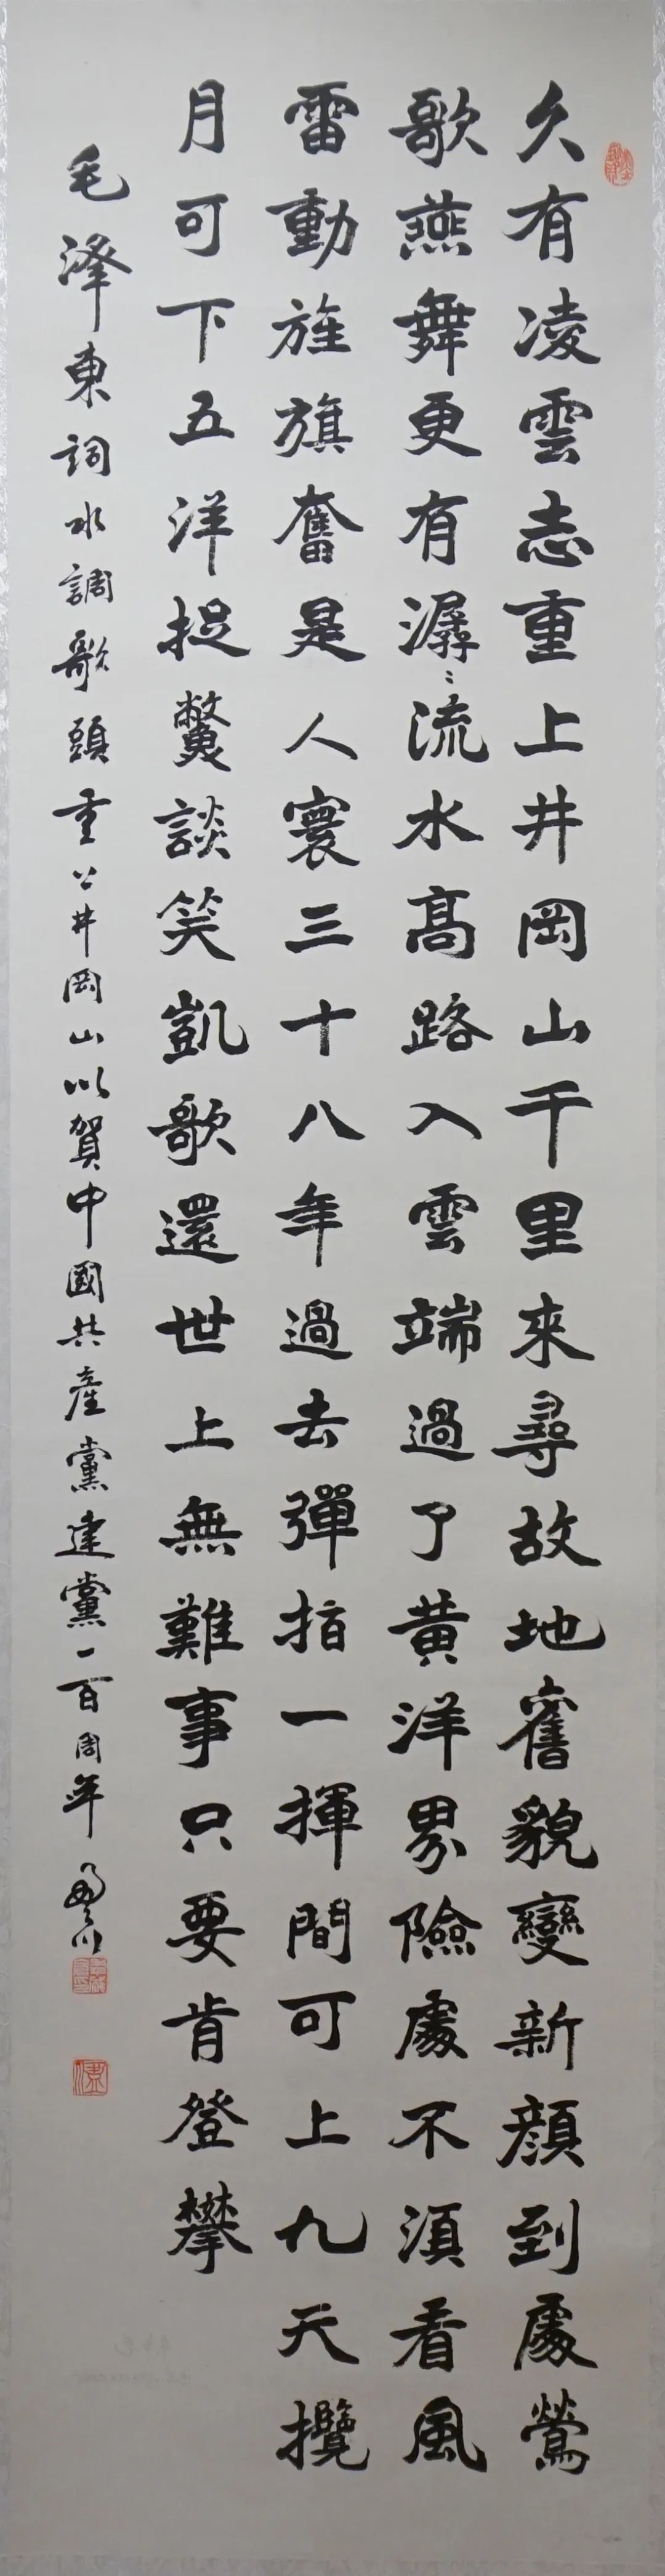 久有凌雲志重上井岡山千里來尋故地舊貌變新顏到處鶯
歌燕舞更有潺〻流水髙路入雲端過了黃洋界險處不須看風
雷動旌旗奮是人寰三十八年過去彈指一揮間可上九天攬
月可下五洋捉鼈談笑凱歌還世上無難事只要肯登攀
毛澤東詞水調歌頭重上井岡山以賀中國共產黨建黨一百周年